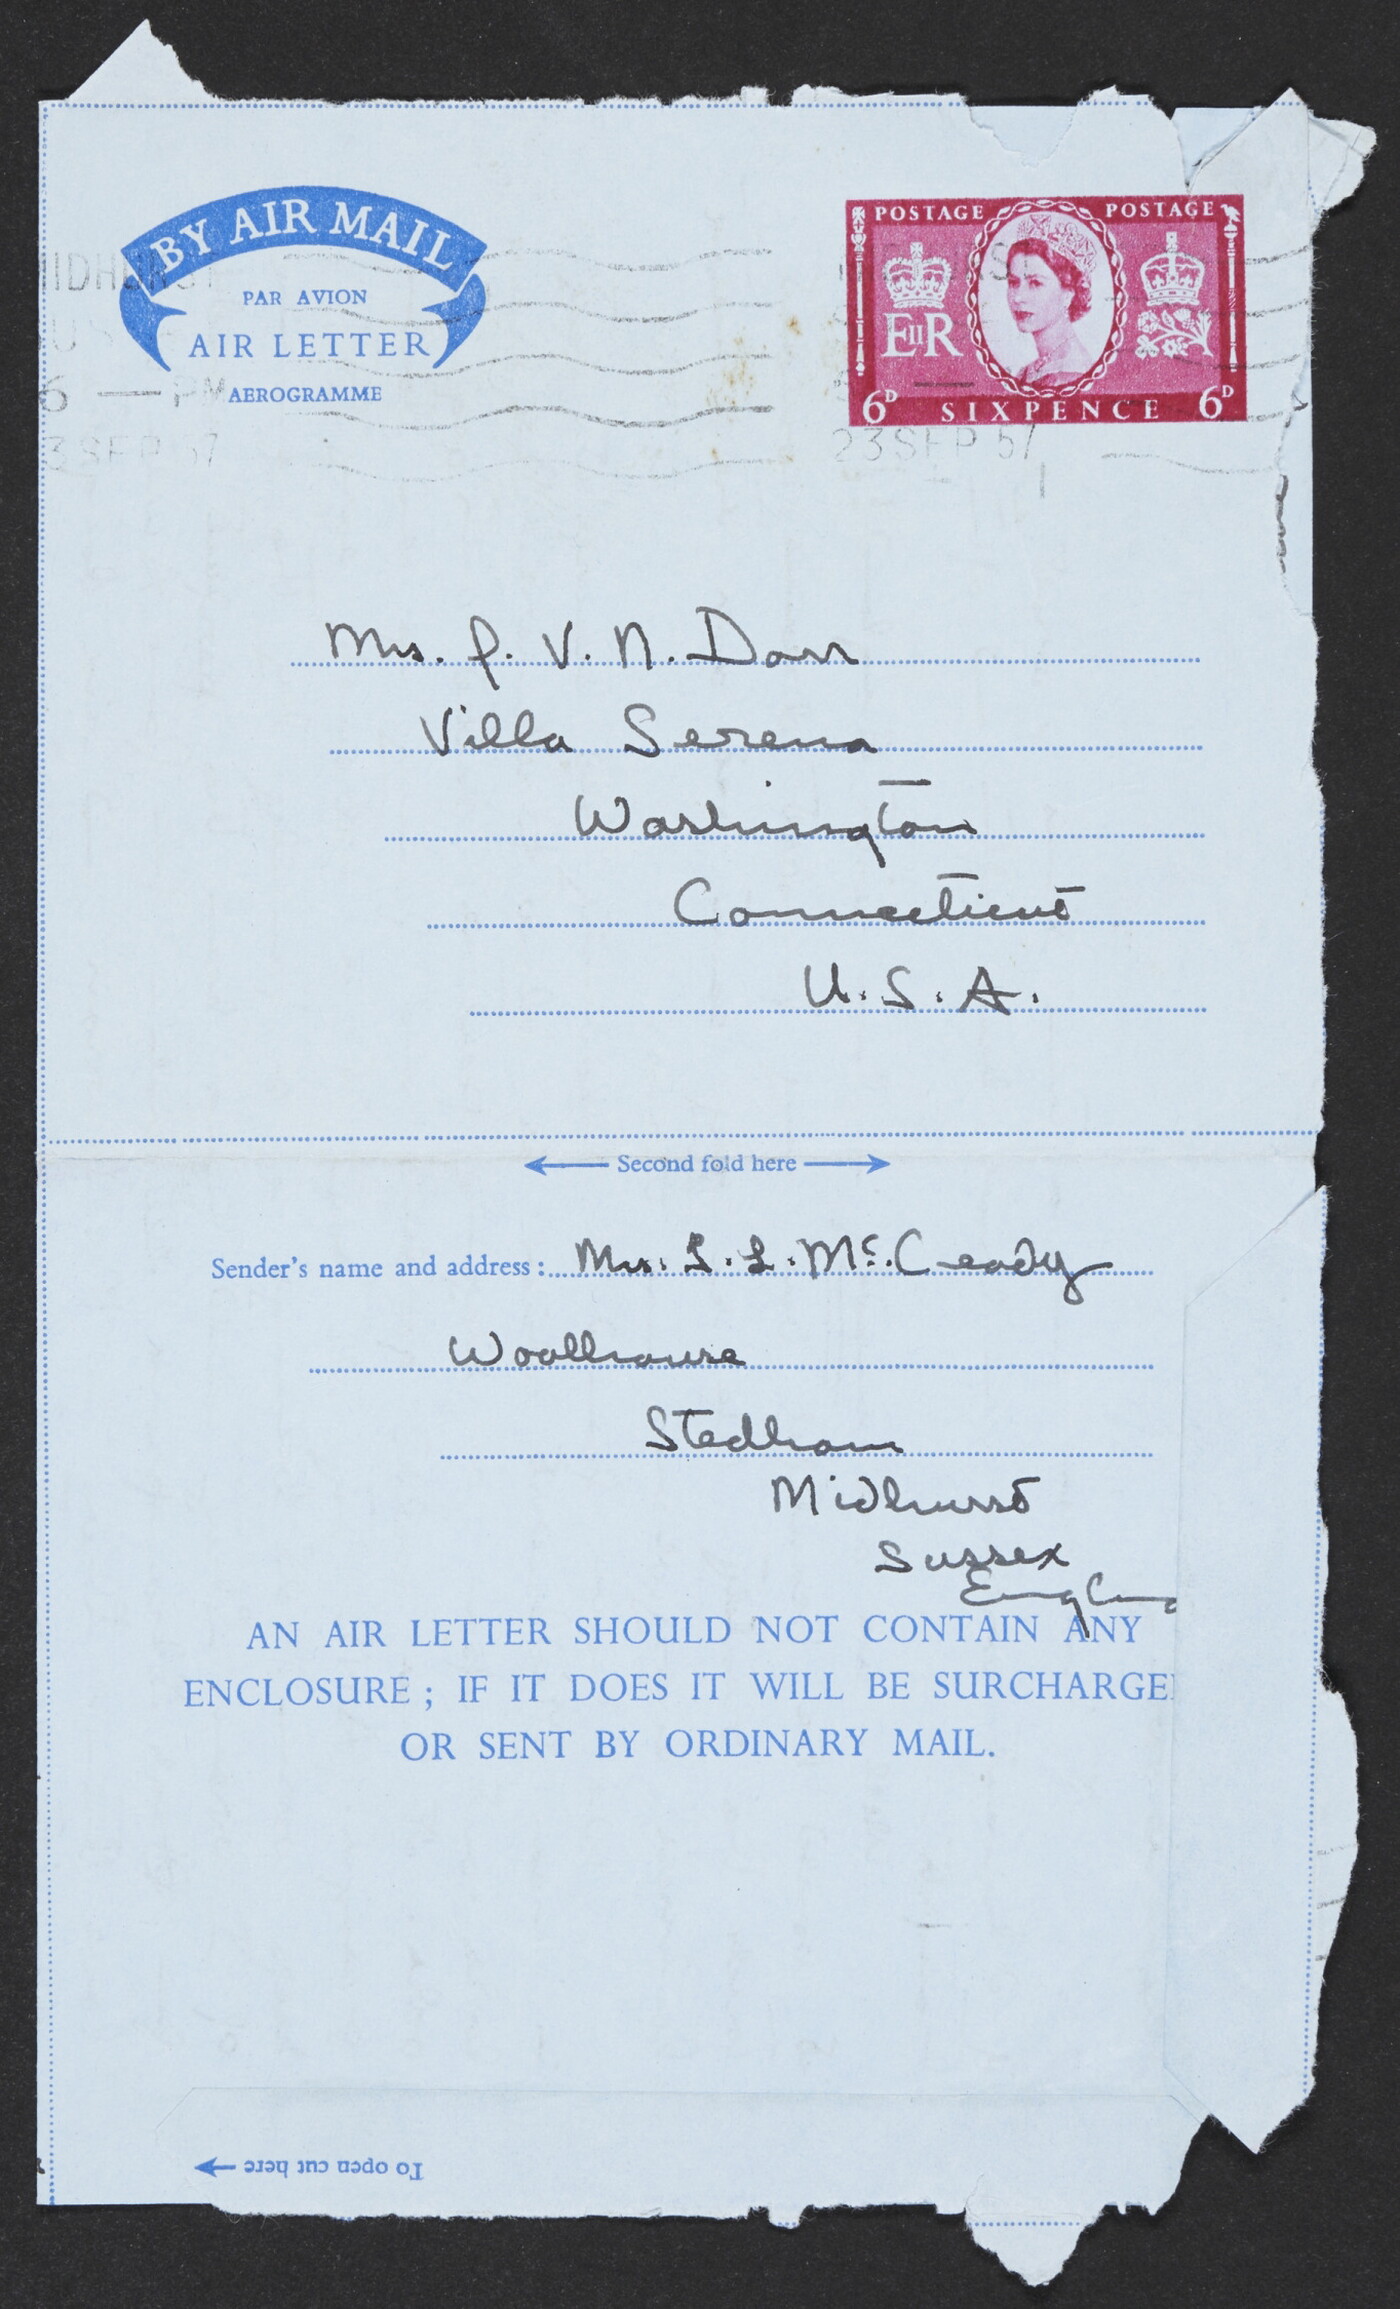 BY AIR MAIL
PAR AVION
AIR LETTER
AEROGRAMME
POSTAGE POSTAGE
EIIR
6D SIXPENCE 6D
6 — PM
23 SEP 57
Mrs. P. V. N. Dorr
Villa Serena
Washington
Connecticut
U.S.A.
Second fold here
Sender's name and address: Mrs. L. L. McCready
Woolhouse
Stedham
Midhurst
Sussex
England
AN AIR LETTER SHOULD NOT CONTAIN ANY
ENCLOSURE ; IF IT DOES IT WILL BE SURCHARGE
OR SENT BY ORDINARY MAIL.
To open cut here